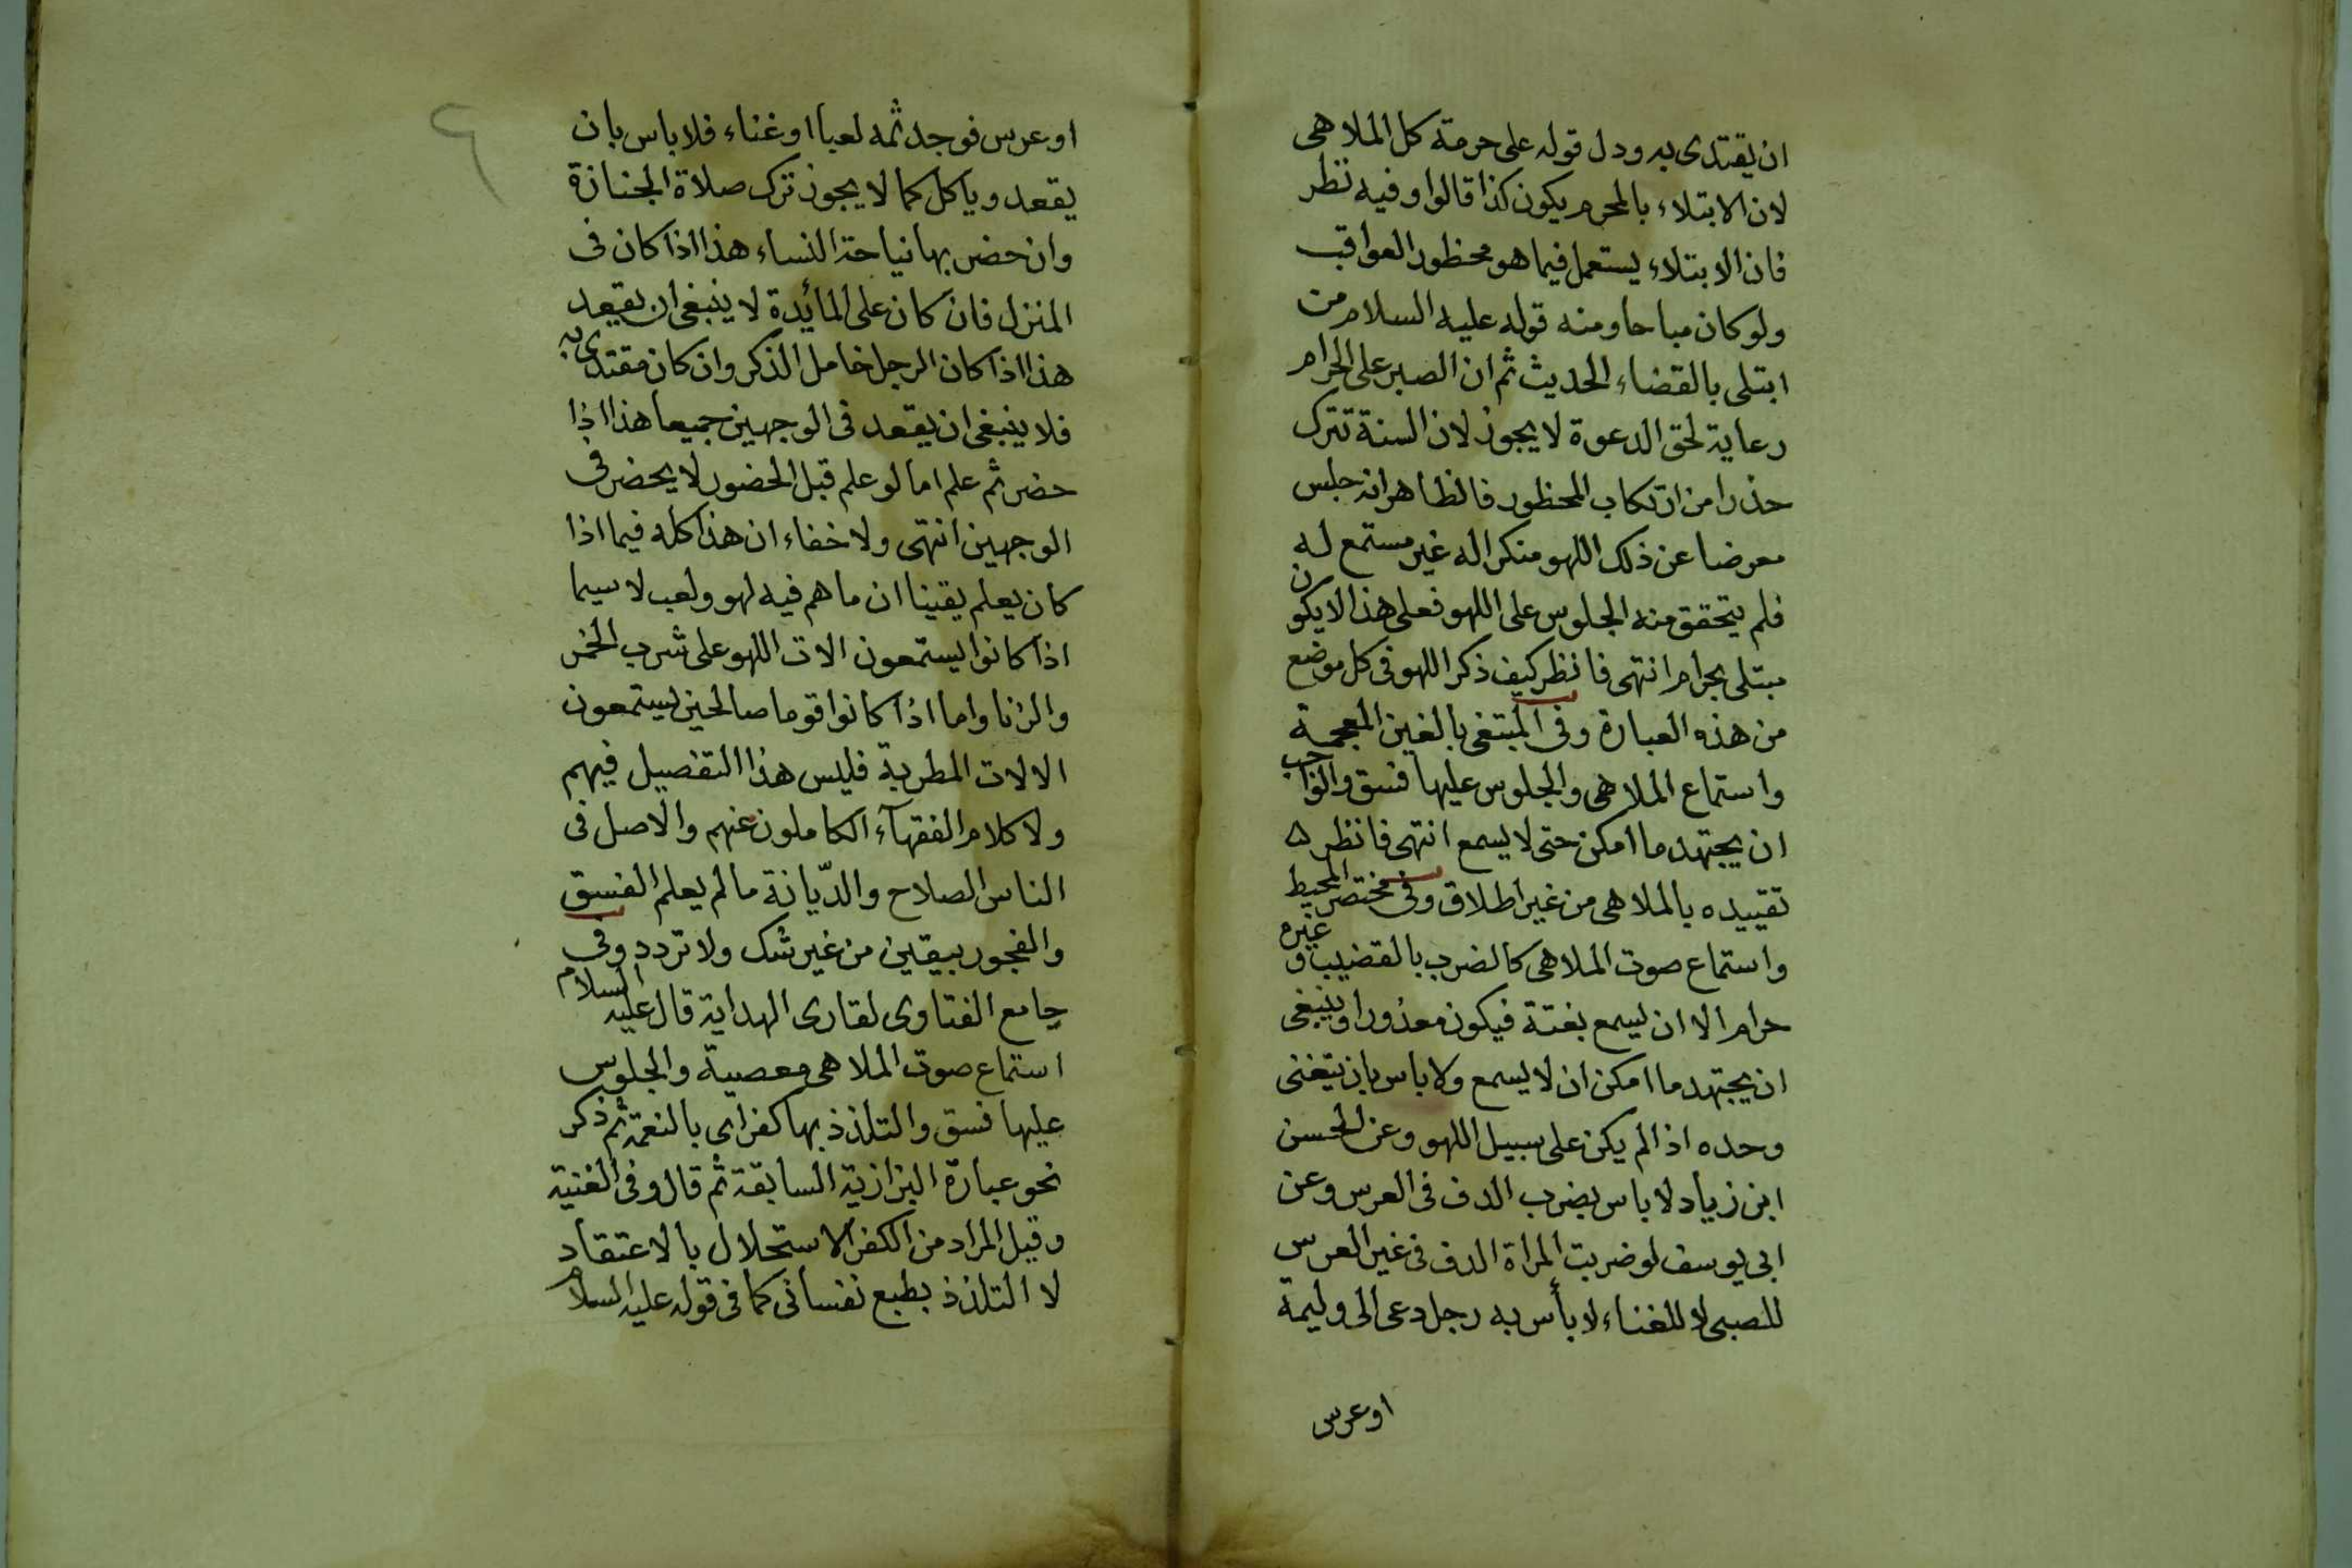 ان يقتدى به ودل قوله على حرمة كل الملاهى
لان الابتلاء بالمحرم يكون كذا قالوا وفيه نظر
فان الابتلاء يستعمل فيما هو محظور العواقب
ولو كان مباحا ومنه قوله عليه السلام من
ابتلى بالقضاء الحديث ثم ان الصبر على الحرام
رعاية لحق الدعوة لا يجوز لان السنة تترك
حذرا من ارتكاب المحظور فالظاهر انه جلس
معرضا عن ذلك اللهو منكرا له غير مستمع له
فلم يتحقق منه الجلوس على اللهو فعلى هذا لا يكون
مبتلى بحرام انتهى فانظر كيف ذكر اللهو فى كل موضع
من هذه العبارة وفى المبتغى بالغين المعجمة
واستماع الملاهى والجلوس عليها فسق والواجب
ان يجتهد ما امكن حتى لا يسمع انتهى فانظر ه
تقييده بالملاهى من غير اطلاق وفى مختصر المحيط
واستماع صوت الملاهى كالضرب بالقضيب وغيره
حرام الا ان يسمع بغتة فيكون معذورا وينبغى
ان يجتهد ما امكن ان لا يسمع ولا باس بان يتغنى
وحده اذا لم يكن على سبيل اللهو وعن الحسن
ابن زياد لا باس بضرب الدف فى العرس وعن
ابى يوسف لو ضربت المراة الدف فى غير العرس
للصبى لا للغناء لا بأس به رجل دعى الى وليمة
او عرس
٩
او عرس فوجد ثمه لعبا او غناء فلا باس بان
يقعد وياكل كما لا يجوز ترك صلاة الجنازة
وان حضر بها نياحة النساء هذا اذا كان فى
المنزل فان كان على المائدة لا ينبغى ان يقعد
هذا اذا كان الرجل خامل الذكر وان كان مقتدى به
فلا ينبغى ان يقعد فى الوجهين جميعا هذا اذا
حضر ثم علم اما لو علم قبل الحضور لا يحضر فى
الوجهين انتهى ولا خفاء ان هذا كله فيما اذا
كان يعلم يقينا ان ما هم فيه لهو ولعب لا سيما
اذا كانوا يستمعون الات اللهو على شرب الخمر
والزنا واما اذا كانوا قوما صالحين يستمعون
الالات المطربة فليس هذا التفصيل فيهم
ولا كلام الفقهآء الكاملون عنهم والاصل فى
الناس الصلاح والدّيانة ما لم يعلم الفسق
والفجور بيقين من غير شك ولا تردد وفى
جامع الفتاوى لقارى الهداية قال عليه السلام
استماع صوت الملاهى معصية والجلوس
عليها فسق والتلذذ بها كفر اى بالنعمة ثم ذكر
نحو عبارة البزازية السابقة ثم قال وفى الغنية
وقيل المراد من الكفر الاستحلال بالاعتقاد
لا التلذذ بطبع نفسانى كما فى قوله عليه السلام